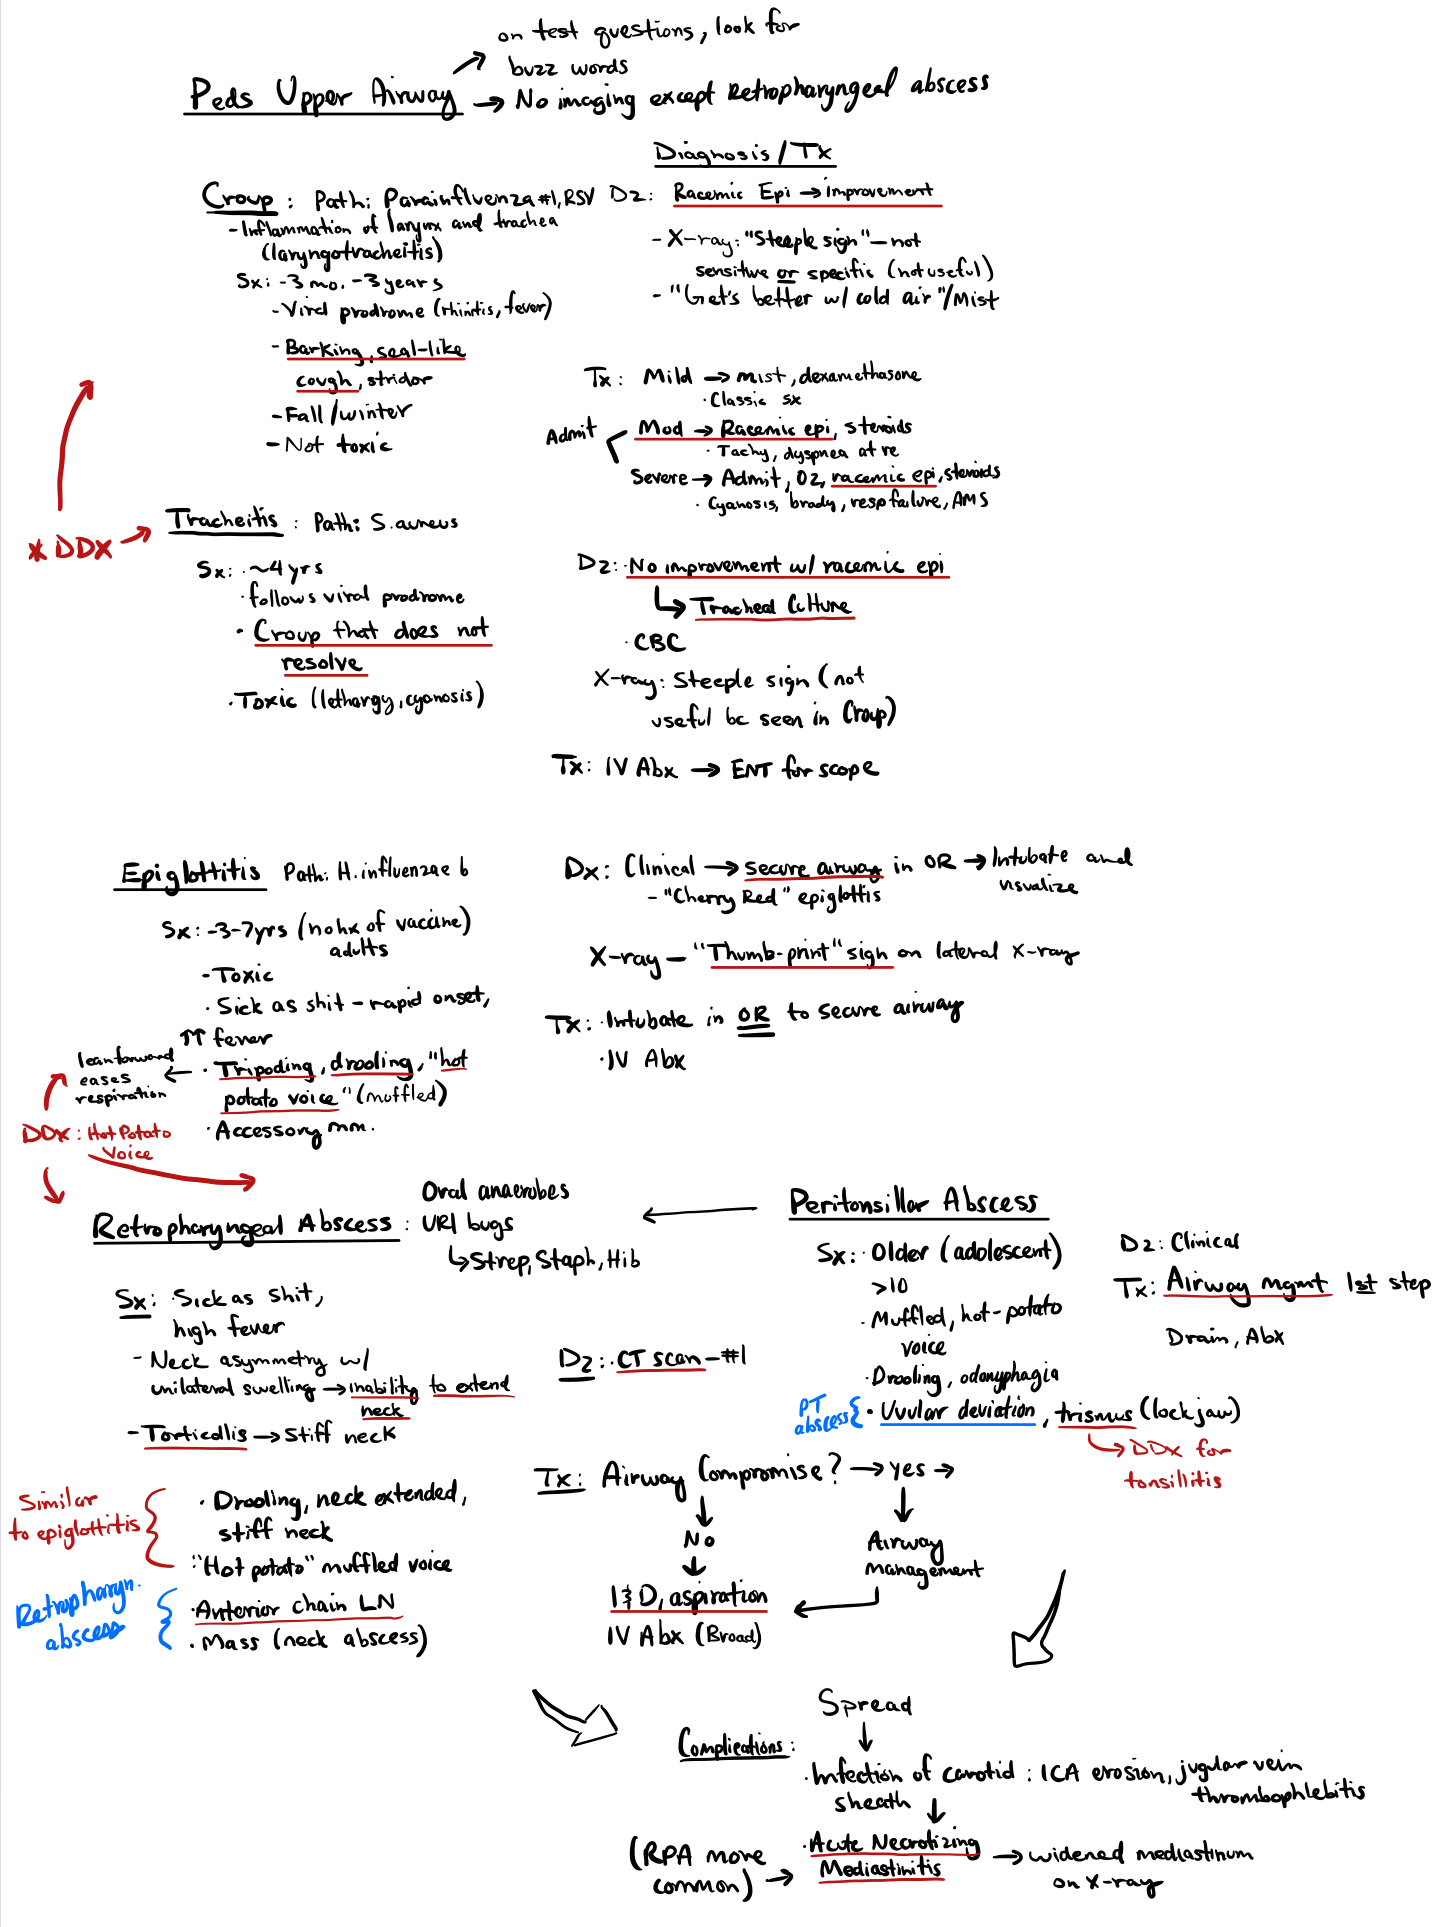 on test questions, look for
buzz words
Peds Upper Airway → No imaging except Retropharyngeal abscess
Diagnosis/Tx
Croup : Path: Parainfluenza #1, RSV
- Inflammation of larynx and trachea
(laryngotracheitis)
Sx: -3 mo. - 3 years
- Viral prodrome (rhinitis, fever)
- Barking, seal-like
cough, stridor
- Fall/winter
- Not toxic
Dz: Racemic Epi → improvement
- X-ray: "Steeple sign" — not
sensitive or specific (not useful)
- "Get's better w/ cold air"/Mist
Tx: Mild → mist, dexamethasone
· Classic sx
Admit
Mod → Racemic epi, steroids
· Tachy, dyspnea at re
Severe → Admit, O2, racemic epi, steroids
· Cyanosis, brady, resp failure, AMS
* DDX
Tracheitis : Path: S. aureus
Sx: · ~4 yrs
· follows viral prodrome
· Croup that does not
resolve
· Toxic (lethargy, cyanosis)
Dz: · No improvement w/ racemic epi
↳ Tracheal Culture
· CBC
X-ray: Steeple sign (not
useful bc seen in Croup)
Tx: IV Abx → ENT for scope
Epiglottitis Path: H. influenzae b
Sx: -3-7yrs (no hx of vaccine)
adults
- Toxic
· Sick as shit - rapid onset,
↑↑ fever
· Tripoding, drooling, "hot
potato voice" (muffled)
· Accessory mm.
lean forward
eases
respiration
DDx: Hot Potato
Voice
Dx: Clinical → secure airway in OR → Intubate and
visualize
- "Cherry Red" epiglottis
X-ray — "Thumb-print" sign on lateral x-ray
Tx: · Intubate in OR to secure airway
· IV Abx
Retropharyngeal Abscess :
Oral anaerobes
URI bugs
↳ Strep, Staph, Hib
Sx: · Sick as shit,
high fever
- Neck asymmetry w/
unilateral swelling → inability to extend
neck
- Torticollis → stiff neck
Similar
to epiglottitis
· Drooling, neck extended,
stiff neck
· "Hot potato" muffled voice
Retropharyn.
abscess
· Anterior chain LN
· Mass (neck abscess)
Dz: · CT scan - #1
Tx: Airway Compromise? → yes →
No
Airway
management
I&D, aspiration
IV Abx (Broad)
Peritonsillar Abscess
Sx: · Older (adolescent)
>10
· Muffled, hot-potato
voice
· Drooling, odonyphagia
PT
abscess
· Uvular deviation, trismus (lock jaw)
→ DDx for
tonsillitis
Dz: Clinical
Tx: Airway mgmt 1st step
Drain, Abx
Spread
Complications:
· Infection of carotid : ICA erosion, jugular vein
sheath
thrombophlebitis
(RPA more
common) →
· Acute Necrotizing
Mediastinitis
→ widened mediastinum
on x-ray